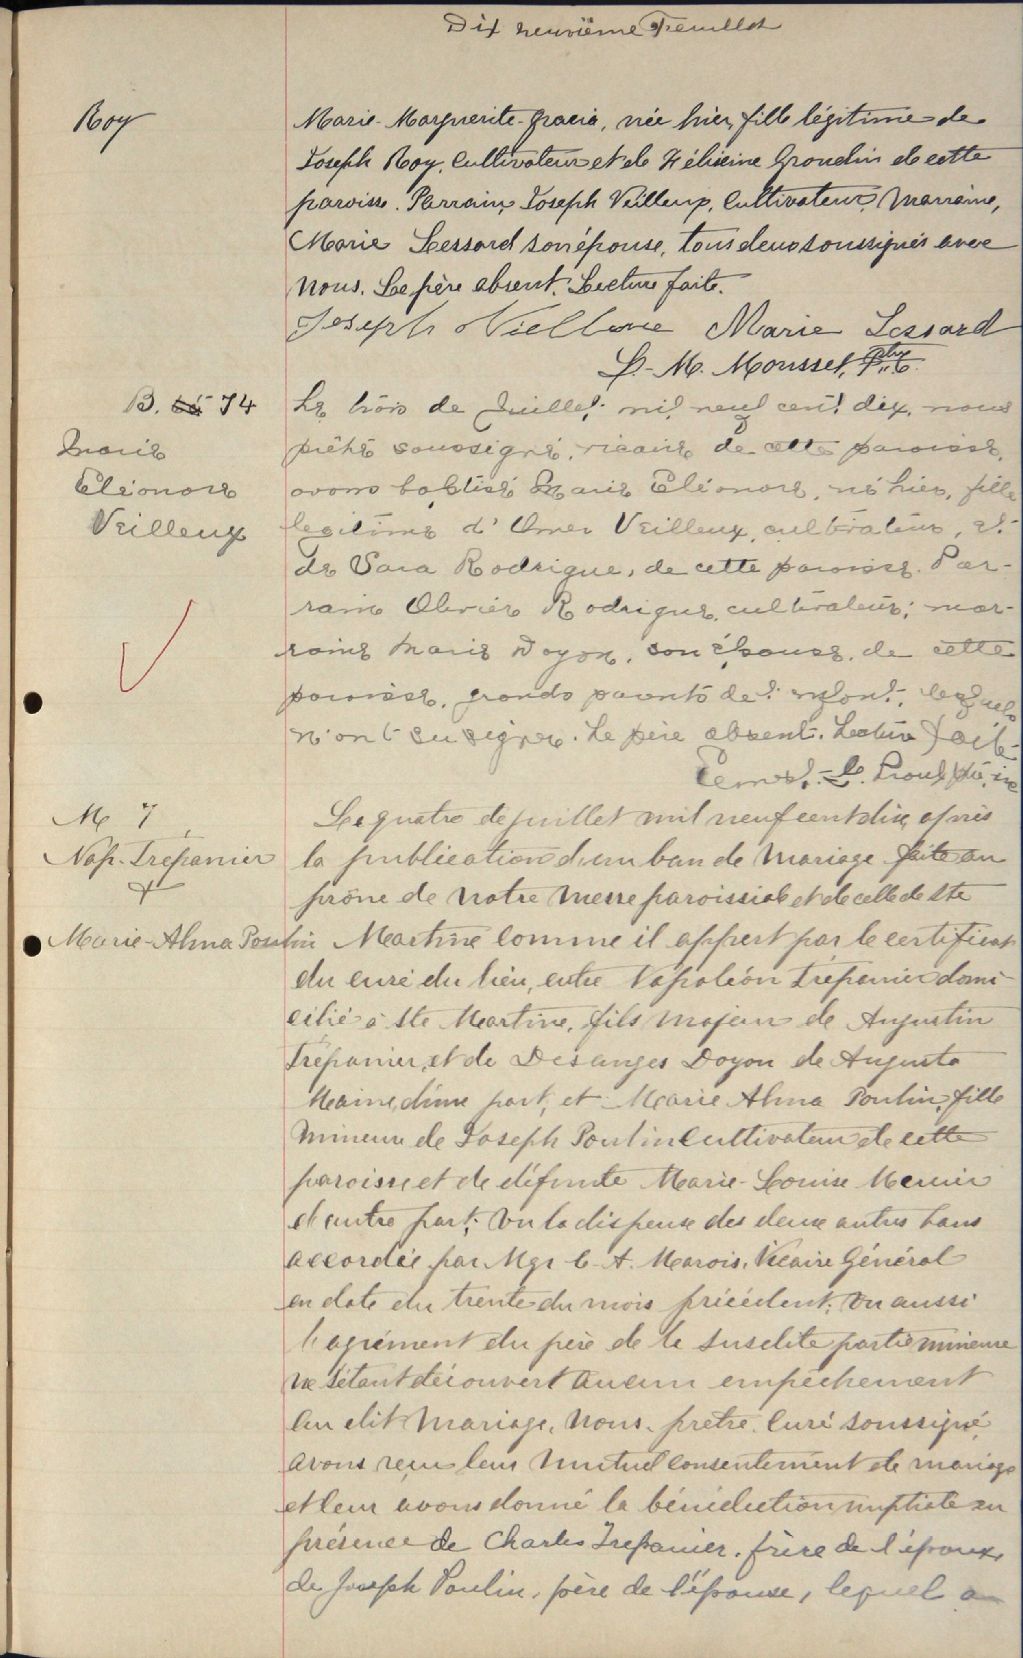 Dix neuvième Feuillet
Roy
Marie-Marguerite-Gracia, née hier, fille légitime de
Joseph Roy, Cultivateur et de Grondin de cette
paroisse. Parrain, Joseph Veilleux, Cultivateur, Marraine,
Marie Lessard son épouse, tous deux soussignés avec
nous. Le père absent. Lecture faite.
Joseph Vielleuse Marie Lessard
L.-M. Mousset, Ptre
B. 74
Marie
Eléonore
Veilleux
Le trois de Juillet mil neuf cent dix, nous
prêtre soussigné, vicaire de cette paroisse,
avons baptisé Marie Eléonore, né hier, fille
legitime d'Omer Veilleux, cultivateur, et
de Sara Rodrigue, de cette paroisse. Par-
rain Olivier Rodrigue, cultivateur; mar-
raine Marie Doyon, son épouse, de cette
paroisse, grands parents de l'enfant, lesquels
n'ont su signer. Le père absent. Lecture faite
Ernest Proulx ptre, vic
M 7
Nap. Trépanier
&
Marie-Alma Poulin
Le quatre de juillet mil neuf cent dix, après
la publication d'un ban de Mariage faite au
prône de notre Messe paroissiale et de celle de Ste
Martine comme il appert par le certificat
du curé du lieu, entre Napoléon Trépanier domi-
cilié à Ste Martine, fils majeur de Augustin
Trépanier, et de Desanges Doyon de Augusta
Maine, d'une part, et Marie Alma Poulin, fille
Mineure de Joseph Poulin Cultivateur de cette
paroisse et de défunte Marie-Louise Mercier
d'autre part; Vu la dispense des deux autres bans
accordée par Mgr C. A. Marois, Vicaire Général
en date du trente du mois précédent; Vu aussi
l'agrément du père de la susdite partie mineure
ne s'étant découvert aucun empêchement
au dit Mariage, Nous, prêtre, Curé soussigné,
avons reçu leur Mutuel consentement de mariage
et leur avons donné la bénédiction nuptiale en
présence de Charles Trépanier, frère de l'époux,
de Joseph Poulin, père de l'épouse, lequel a